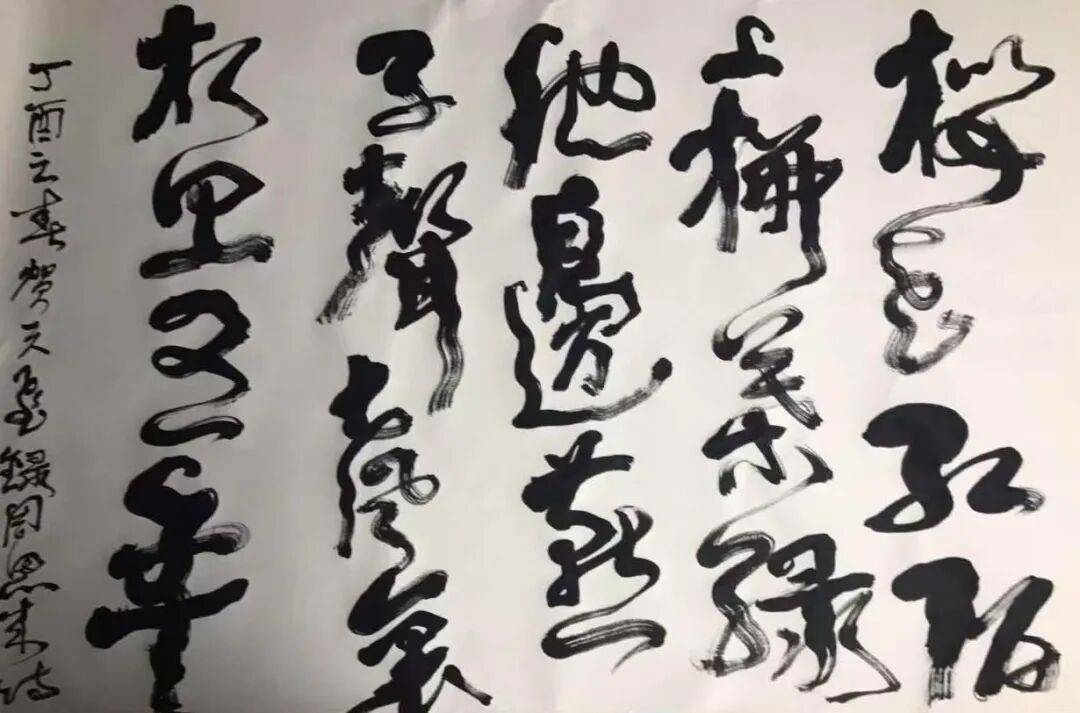 櫻花红陌
上柳葉綠
池邊燕
子聲聲裏
相思又一年
丁酉之春贺天 録周恩来诗